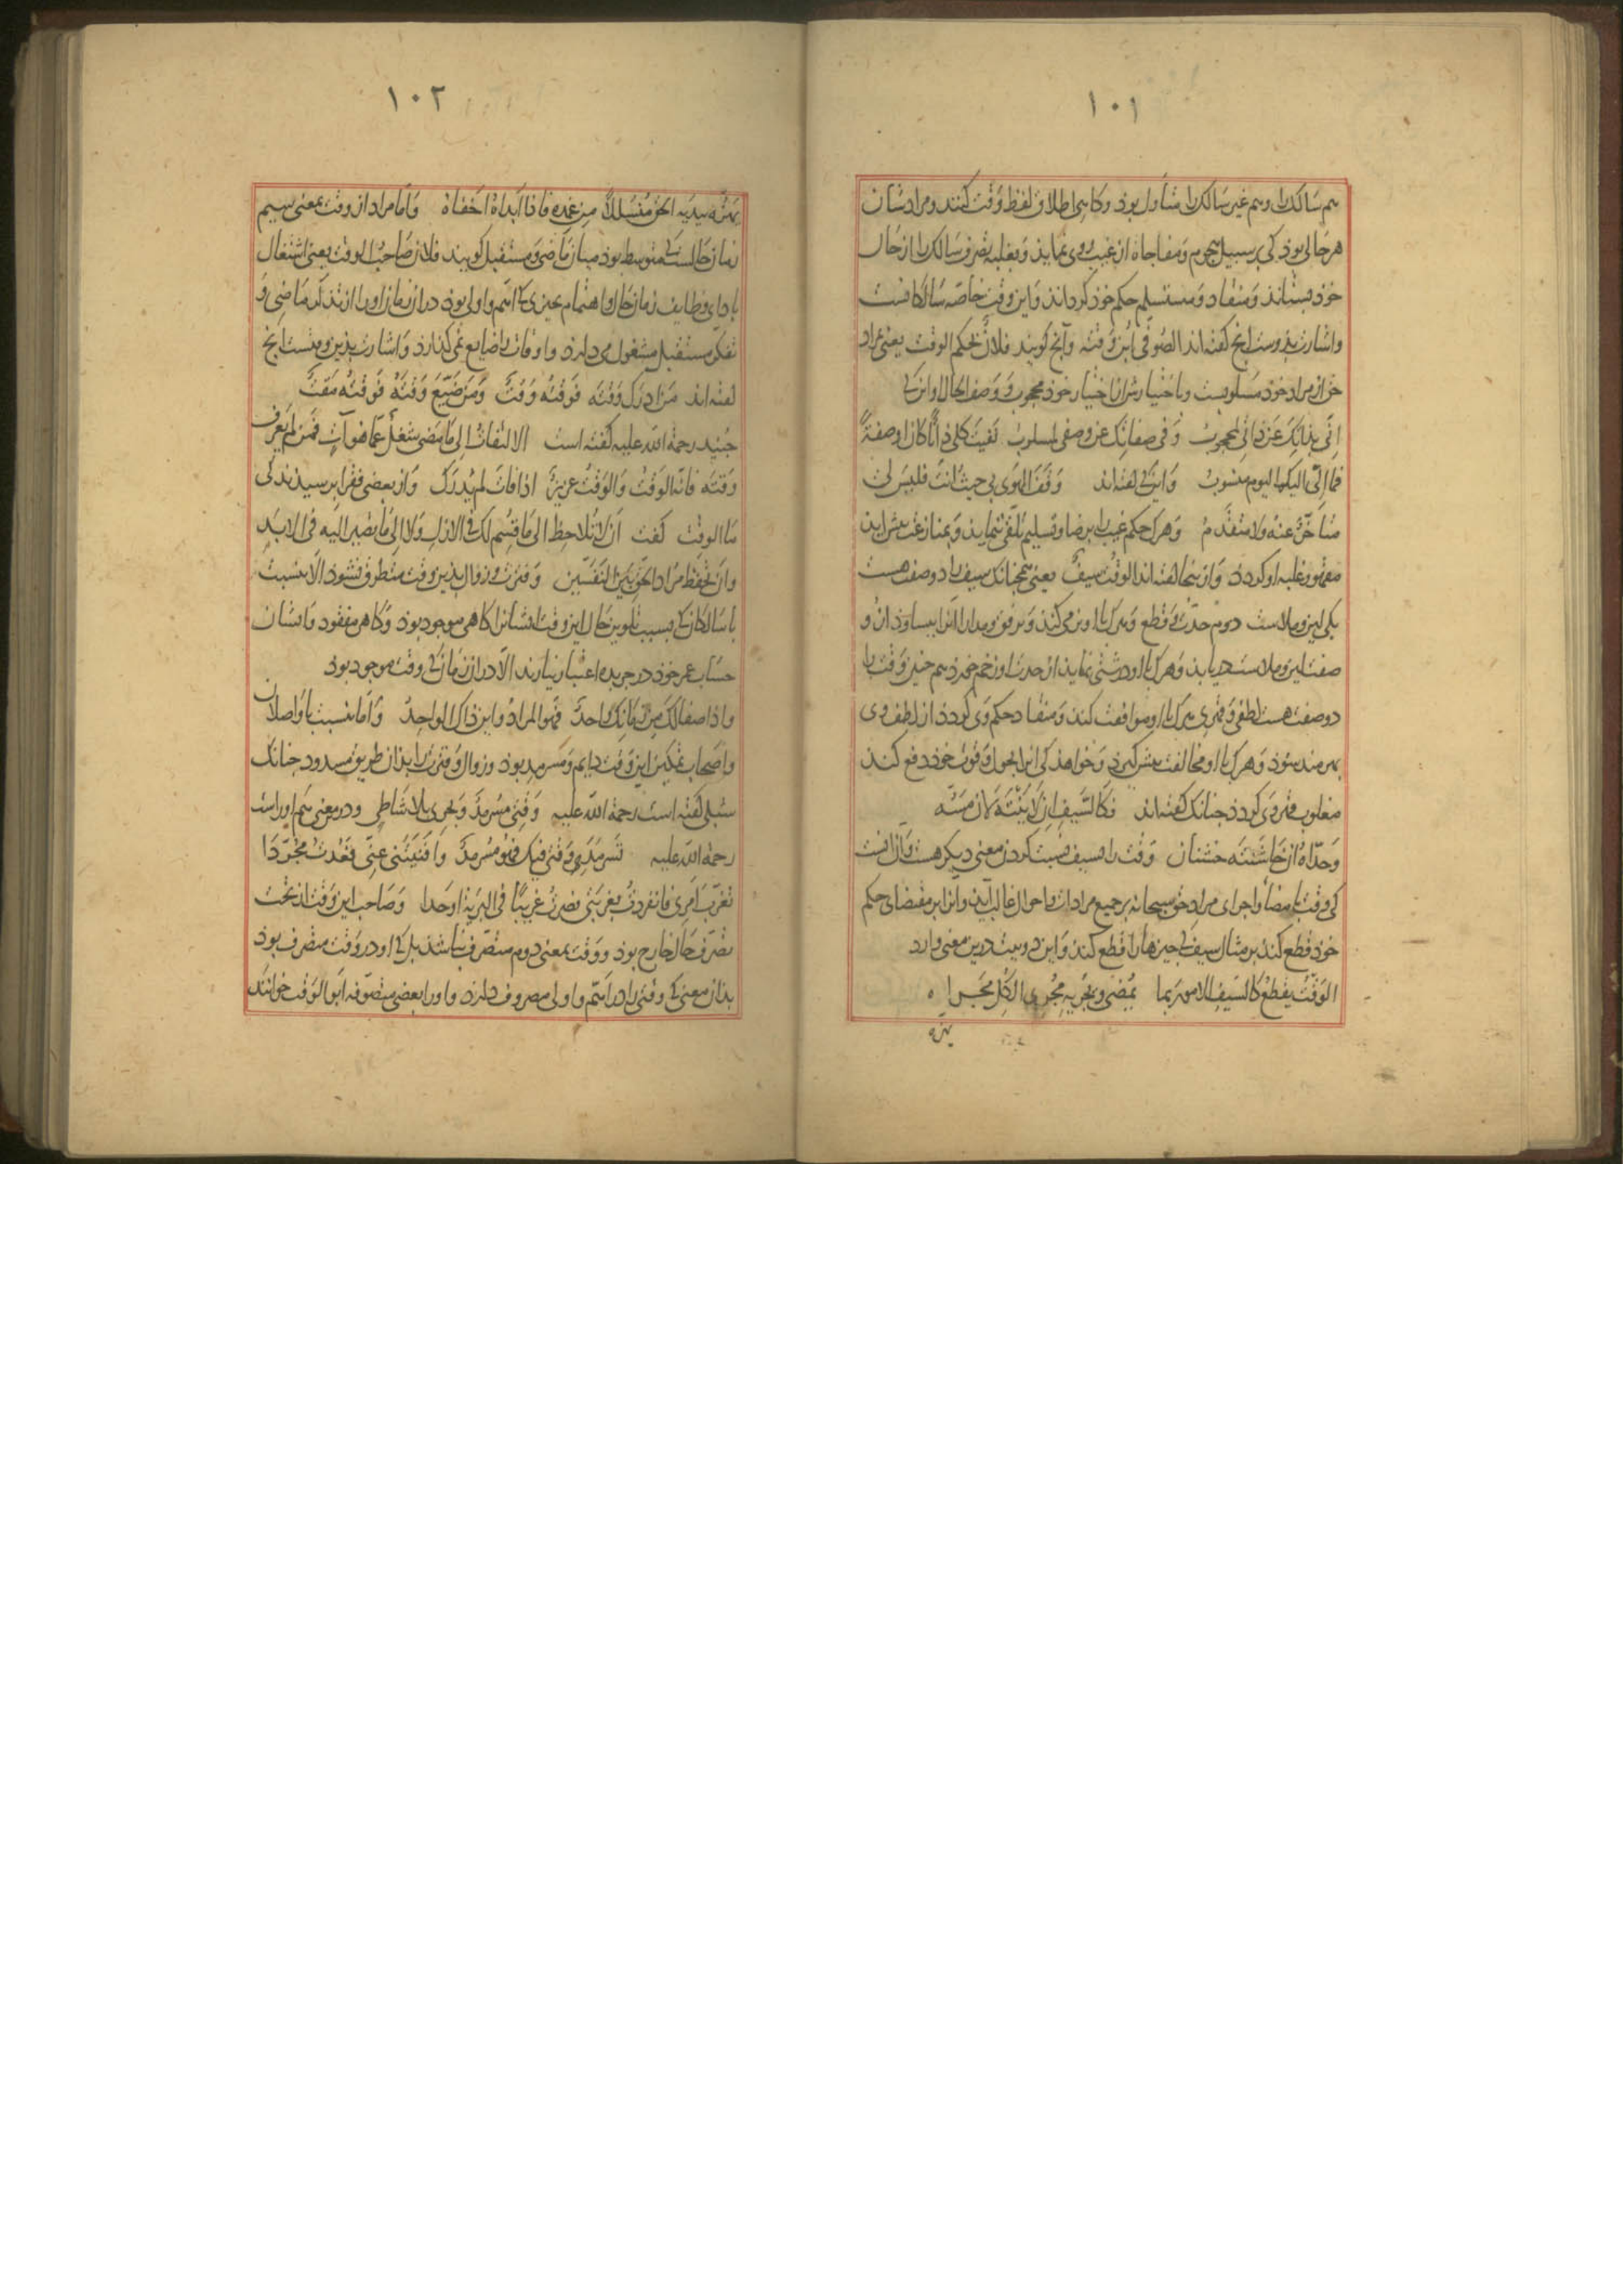 ١٠١
هم سالک را و هم غیر سالک را متناول بوذ و کاهی اطلاق لفظ وقت کنند و مرادشان
هر حالی بوذ کی بر سبیل هجوم و مفاجاة از غیب روی نماید و بغلبه تصرف سالک را از حال
خوذ بستاند و منقاد و مستسلم حکم خوذ کرداند و این وقت خاصه سالکانست
و اشارت بذوست انج کفته اند الصوفی ابن وقته و آنج کویند فلان بحکم الوقت یعنی مراد
حق از مراد خوذ مسلوبست و باختیارش از اختیار خوذ محجوب و وصف الحال او انک
انی بذاتک عن ذاتی لمحجوب و فی صفاتک عن وصفی لمسلوب نفیت کلی ذاتا کان او صفة
فما الی الیکم الیوم منسوب و اینک کفته اند وقف الهوی بی حیث انت فلیس لی
متاخر عنه ولا متقدم و هرک حکم غیب را برضا و تسلیم تلقی ننماید و بمنازعت پیش آید
مقهور و غلبه او کردد و از ینجا کفته اند الوقت سیف یعنی همچنانک سیف را دو صفت هست
یکی لین و ملاست دوم حدت و قطع و هرک با او نرمی کند و برفق و مدارا انرا ببساوذ ازو
صفت لین و ملاست دریابد و هرک با او درشتی نماید از حدت او زخم خورد هم چنین وقت را
دو صفت هست لطفی و قهری هرک با او موافقت کند و منقاد حکم وی کردد از لطف وی
بهره مند شوذ و هرک با او مخالفت پیش کیرد و خواهذ کی انرا بحول و قوت خوذ دفع کند
مغلوب قهر وی کردد جنانک کفته اند فکالسیف ان لاینته لان مسه
و حداه ان خاشنته خشنان وقت را بسیف نسبت کردن معنی دیکر هست و آن انست
کی وقت بامضا و اجرای مراد حق سبحانه بر جمیع مرادات و احوال غالب آید و انرا بر مقتضای حکم
خوذ قطع کند بر مثال سیف کی جیزها را قطع کند و این دو بیت درین معنی وارد
الوقت یقطع کالسیف الامور بما یمضی و یجریه مجری الکل مجراه
بهزه
١٠٢
بهزه یبدیه الحق منسللا من غمده فاذا ابداه اخفاه و اما مراد از وقت بمعنی سیم
زمان حالست کی متوسط بوذ میان ماضی و مستقبل کویند فلان صاحب الوقت یعنی اشتغال
بادای وظایف زمان حال و اهتمام بجیزی کی اهم و اولی بوذ در آن زمان او را از تذکر ماضی و
تفکر مستقبل مشغول می دارد و اوقات را ضایع نمی کذارد و اشارت بذین وقتست انج
کفته اند من ادرک وقته فوقته وقت و من ضیع وقته فوقته مقت
جنید رحمة الله علیه کفته است الالتفات الی ما مضی شغل عما هو آت فمن لم یعرف
وقته فاته الوقت و الوقت عزیز اذا فات لم یدرک و از بعضی فقرا پرسیدند کی
ما الوقت کفت ان لا تلاحظ الی ما قسم لک فی الازل ولا الی ما تصیر الیه فی الابد
و ان تحفظ مراد الحق بین النفسین و فترت و زوال بذین وقت متطرق نشوذ الا بنسبت
با سالکان کی بسبب تلوین حال این وقت ایشانرا کاهی موجود بوذ و کاهی مفقود و ایشان
حساب عمر خوذ در جریده اعتبار نیارند الا در ان زمان کی وقت موجود بوذ
و اذا صفا لک من زمانک واحد فهو المراد و این ذاک الواحد و اما بنسبت با واصلان
و اصحاب تمکین این وقت دایم و سرمد بوذ و زوال و فترت را بذان طریق مسدود جنانک
شبلی کفته است رحمة الله علیه وقتی مسرمد و بحری بلا شاطی و در معنی هم اوراست
رحمة الله علیه تسرمد وقتی فیک فهو مسرمد و افنیتنی عنی فعدت مجردا
تغرب امری فانفردت بغربتی فصرت غریبا فی البریة اوحدا و صاحب این وقت از تحت
تصرف حال خارج بوذ و وقت بمعنی دوم متصرف نباشذ بل کی او در وقت متصرف بوذ
بذان معنی کی وقتی را در اهم و اولی مصروف دارد و او را بعضی متصوفه ابو الوقت خوانند